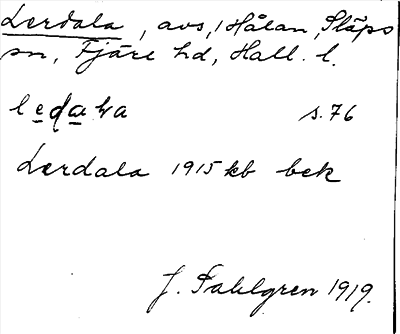 Lerdala, avs, Hålan, Släps
sn, Fjäre hd, Hall. l.
s. 76
Lerdala 1915 kb bek
J. Sahlgren 1919.